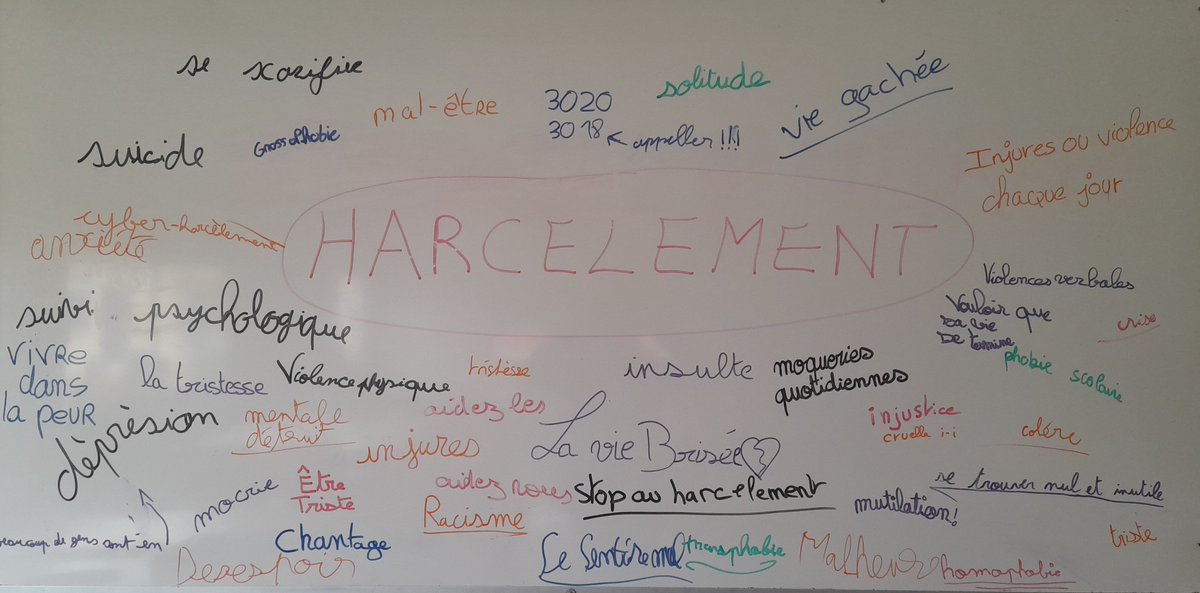 se scarifier
mal-être
3020
3018 ← appeller!!!
solitude
vie gachée
suicide
Grossophobie
Injures ou violence
chaque jour
cyber-harcèlement
anxiété
HARCELEMENT
Violences verbales
suivi psychologique
Vouloir que
sa vie
se termine
crise
vivre
dans
la peur
la tristesse
Violence physique
tristesse
insulte
moqueries
quotidiennes
phobie scolaire
dèprèsion
mentale
détruit
aidez les
injures
La vie Brisée
injustice
cruelle i-i
colére
mocrie
Être
Triste
aidez nous
Stop au harcelement
se trouver nul et inutile
mutilation!
Racisme
beaucoup de gens sont en
Chantage
Desespoir
Se Sentire mal
transphobie
Malheur
homophobie
triste